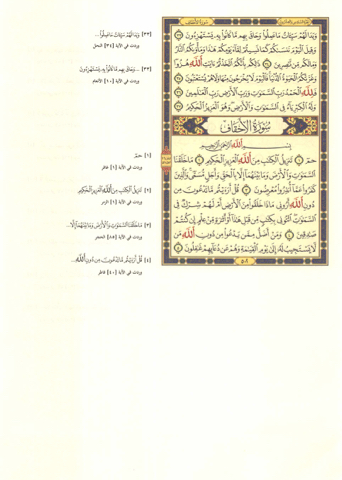 وَبَدَا لَهُمْ سَيِّئَاتُ مَا عَمِلُوا وَحَاقَ بِهِم مَّا كَانُوا بِهِ يَسْتَهْزِءُونَ ٣٣
وَقِيلَ الْيَوْمَ نَنسَىٰكُمْ كَمَا نَسِيتُمْ لِقَاءَ يَوْمِكُمْ هَٰذَا وَمَأْوَىٰكُمُ النَّارُ
وَمَا لَكُم مِّن نَّٰصِرِينَ ٣٤ ذَٰلِكُم بِأَنَّكُمُ اتَّخَذْتُمْ ءَايَٰتِ اللَّهِ هُزُوًا
وَغَرَّتْكُمُ الْحَيَوٰةُ الدُّنْيَا فَالْيَوْمَ لَا يُخْرَجُونَ مِنْهَا وَلَا هُمْ يُسْتَعْتَبُونَ ٣٥
فَلِلَّهِ الْحَمْدُ رَبِّ السَّمَٰوَٰتِ وَرَبِّ الْأَرْضِ رَبِّ الْعَٰلَمِينَ ٣٦
وَلَهُ الْكِبْرِيَاءُ فِي السَّمَٰوَٰتِ وَالْأَرْضِ وَهُوَ الْعَزِيزُ الْحَكِيمُ ٣٧
سُورَةُ الْأَحْقَافِ
بِسْمِ اللَّهِ الرَّحْمَٰنِ الرَّحِيمِ
حمٓ ١ تَنزِيلُ الْكِتَٰبِ مِنَ اللَّهِ الْعَزِيزِ الْحَكِيمِ ٢ مَا خَلَقْنَا
السَّمَٰوَٰتِ وَالْأَرْضَ وَمَا بَيْنَهُمَا إِلَّا بِالْحَقِّ وَأَجَلٍ مُّسَمًّى وَالَّذِينَ
كَفَرُوا عَمَّا أُنذِرُوا مُعْرِضُونَ ٣ قُلْ أَرَءَيْتُم مَّا تَدْعُونَ مِن
دُونِ اللَّهِ أَرُونِي مَاذَا خَلَقُوا مِنَ الْأَرْضِ أَمْ لَهُمْ شِرْكٌ فِي
السَّمَٰوَٰتِ ائْتُونِي بِكِتَٰبٍ مِّن قَبْلِ هَٰذَا أَوْ أَثَٰرَةٍ مِّنْ عِلْمٍ إِن كُنتُمْ
صَٰدِقِينَ ٤ وَمَنْ أَضَلُّ مِمَّن يَدْعُوا مِن دُونِ اللَّهِ مَن
لَّا يَسْتَجِيبُ لَهُ إِلَىٰ يَوْمِ الْقِيَٰمَةِ وَهُمْ عَن دُعَائِهِمْ غَٰفِلُونَ ٥
٥٠٢
[٣٣] وَبَدَا لَهُمْ سَيِّئَاتُ مَا عَمِلُوا...
وردت في الآية [٣٤] النحل
[٣٣] ...وَحَاقَ بِهِم مَّا كَانُوا بِهِ يَسْتَهْزِءُونَ
وردت في الآية [١٠] الأنعام
[١] حمٓ
وردت في الآية [١] غافر
[٢] تَنزِيلُ الْكِتَٰبِ مِنَ اللَّهِ الْعَزِيزِ الْحَكِيمِ
وردت في الآية [١] الزمر
[٣] مَا خَلَقْنَا السَّمَٰوَٰتِ وَالْأَرْضَ وَمَا بَيْنَهُمَا إِلَّا...
وردت في الآية [٨٥] الحجر
[٤] قُلْ أَرَءَيْتُم مَّا تَدْعُونَ مِن دُونِ اللَّهِ...
وردت في الآية [٤٠] فاطر